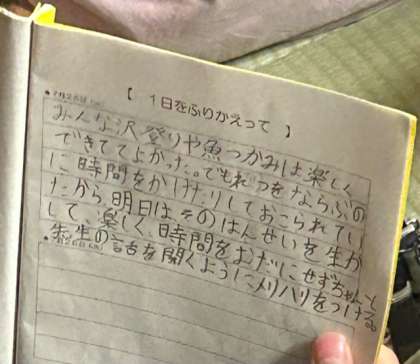 【 1日をふりかえって 】
みんな沢登りや魚つかみは楽しく
できててよかった。でもれつをならぶの
に時間をかけたりしておこられてい
たから、明日はそのはんせいを生か
して、楽しく、時間をむだにせずちゃんと
先生の言舌を聞くようにメリハリをつける。